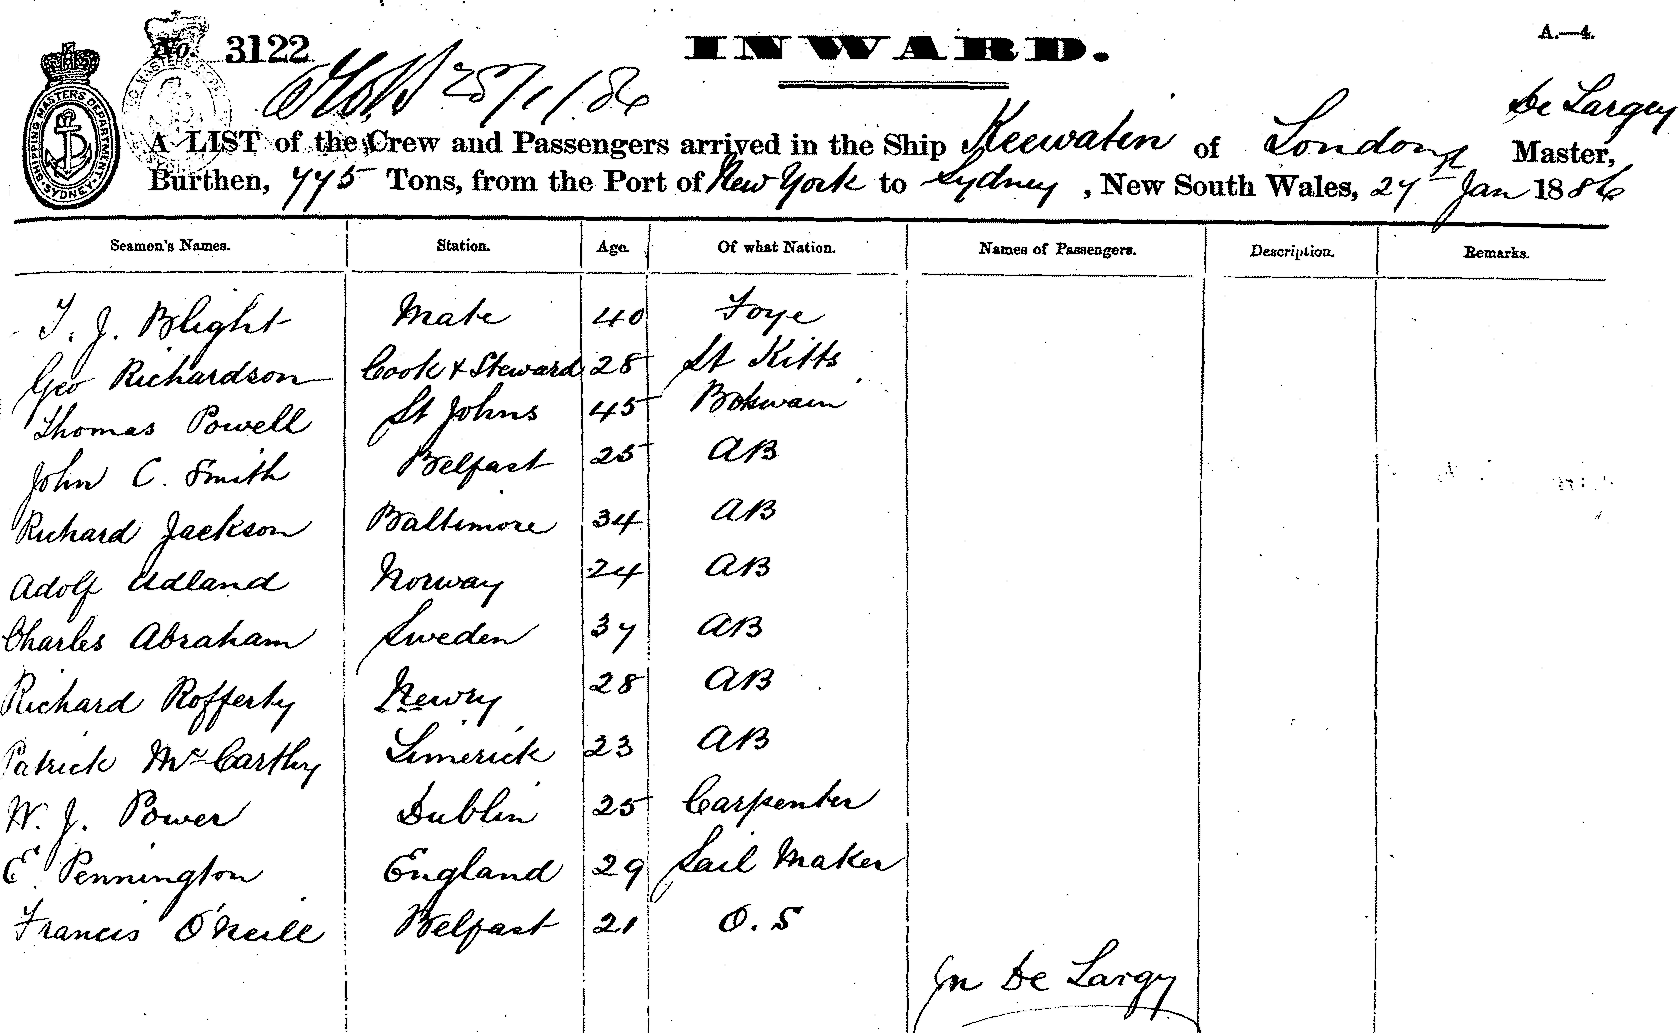 A.—4.
No. 3122
INWARD.
25/1/86
De Largey
A LIST of the Crew and Passengers arrived in the Ship Keewatin of London, Master,
Burthen, 775 Tons, from the Port of New York to Sydney, New South Wales, 27 Jan 1886
SHIPPING MASTERS DEPARTMENT SYDNEY
Seamen's Names. Station. Age. Of what Nation. Names of Passengers. Description. Remarks.
T. J. Blight Mate 40 Foye
Geo Richardson Cook & Steward 28 St Kitts
Thomas Powell St Johns 45 Botswain
John C. Smith Belfast 25 AB
Richard Jackson Baltimore 34 AB
Adolf Udland Norway 24 AB
Charles Abraham Sweden 37 AB
Richard Rofferty Newry 28 AB
Patrick McCarthy Limerick 23 AB
W. J. Power Dublin 25 Carpenter
E. Pennington England 29 Sail Maker
Francis O'Neill Belfast 21 O.S
Jn De Largy